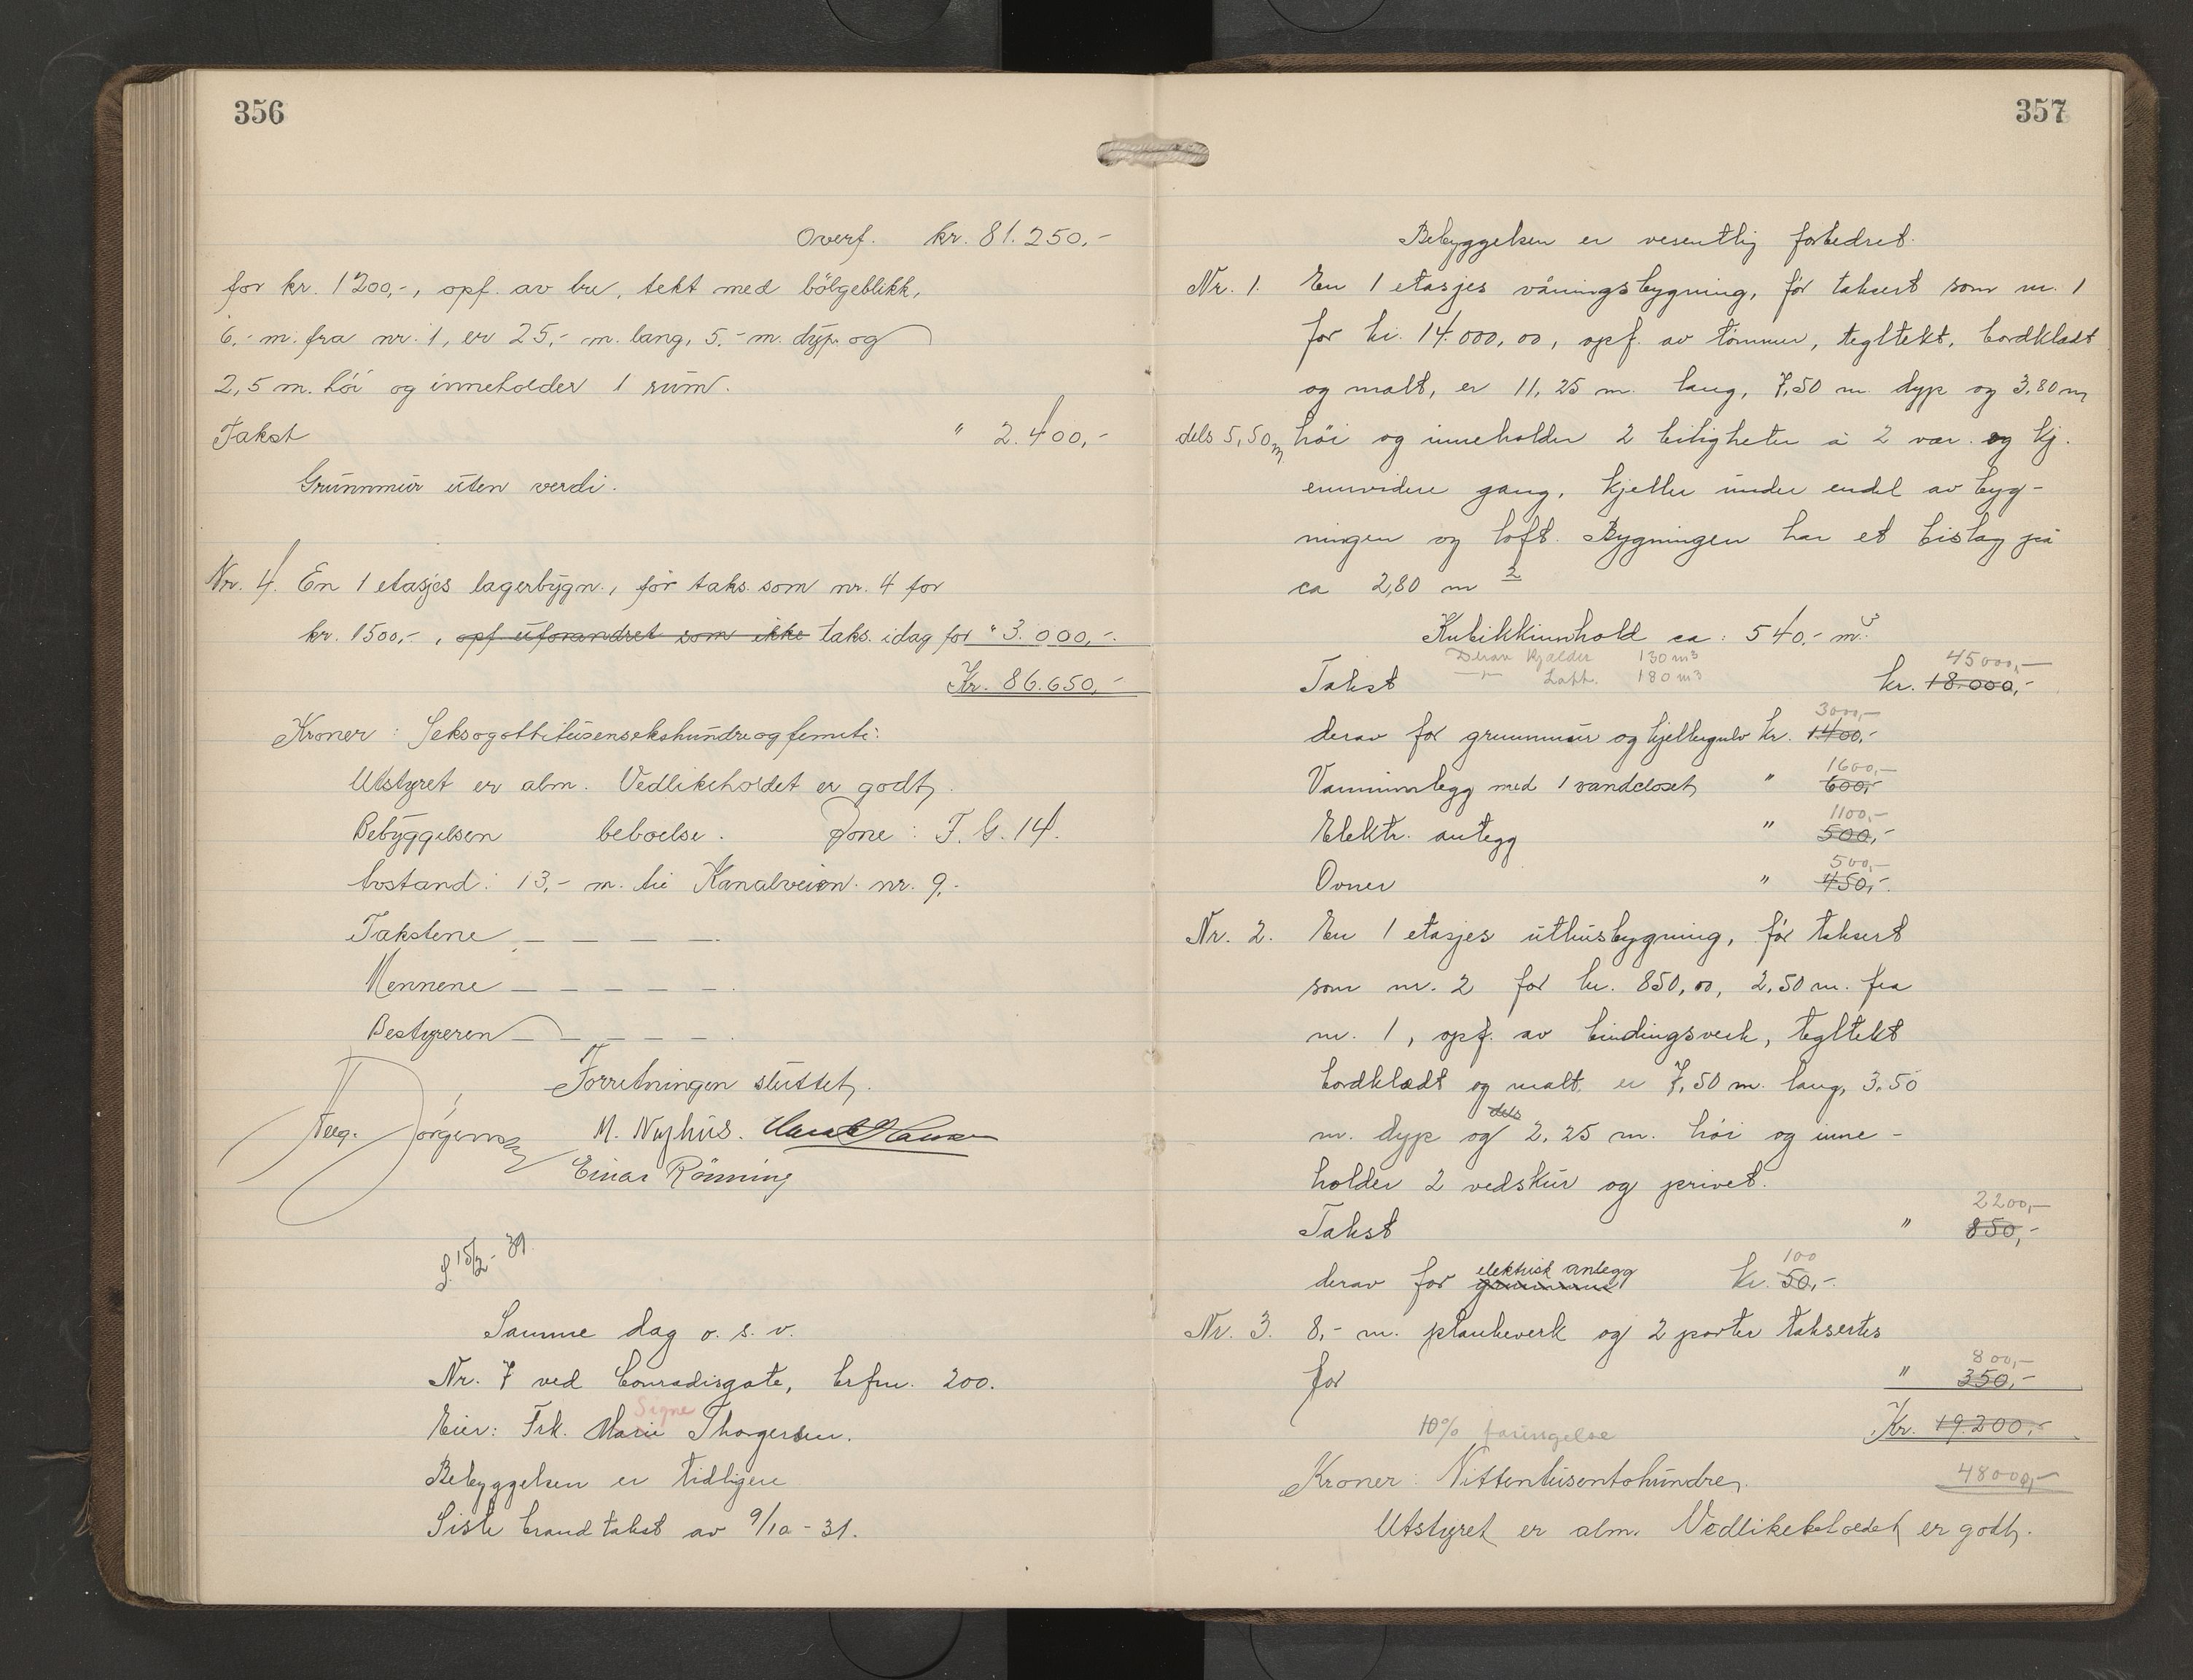 356
Overf. kr. 81.250,-
for kr. 1200,-, opf. av bru, tekt med bölgeblikk,
6,- m. fra nr. 1, er 25,- m. lang, 5,- m. dyp og
2,5 m. höi og inneholder 1 rum.
Takst " 2.400,-
Grunnmur uten verdi.
Nr. 4. En 1 etasjes lagerbygn., för taks. som nr. 4 for
kr. 1500,-, opf uforandret som ikke taks. idag for " 3.000,-.
Kr. 86.650,-
Kroner: Seksogottitusensekshundreogfemti:
Utstyret er alm. Vedlikeholdet er godt.
Bebyggelsen beboelse. Sone: T. G. 14.
Avstand: 13,- m. til Kanalveien nr. 9.-
Takstene - - - -.
Mennene - - - - -.
Bestyreren - - - - -.
Forretningen sluttet.
Jörgensen M. Nyhus.
Einar Rönning
15/2 - 39.
Samme dag o. s. v.
Nr. 7 ved Conradisgate, brfnr. 200.
Signe
Eier: Frk. Marie Thorgersen.
Bebyggelsen er tidligere
Siste brandtakst av 9/10 - 31.
357
Bebyggelsen er vesentlig forbedret.
Nr. 1. En 1 etasjes våningsbygning, för taksert som nr. 1
for kr. 14.000,00, opf. av tömmer, tegltekt, bordklædt
og malt, er 11,25 m. lang, 7,50 m. dyp og 3,80 m
dels 5,50 m höi og inneholder 2 beiligheter à 2 vær. og kj.
ennvidere gang, kjeller under endel av byg-
ningen og loft. Bygningen har et bislag på
ca 2,80 m 2
Kubikkinnhold ca: 540,- m3.
Derav Kjælder 130 m3
-"- Loft. 180 m3
45000,-
Takst kr. 18.000,-
3000,-
derav for grunnmur og kjellergulv kr. 1400,-
1600,-
Vanninnlegg med 1 vandcloset " 600,-
1100,-
Elektr. anlegg " 500,-
500,-
Ovner " 450,-.
Nr. 2. En 1 etasjes uthusbygning, för taksert
som nr. 2 for kr. 850,00, 2,50 m. fra
nr. 1, opf. av bindingsverk, tegltekt
bordklædt og malt, er 7,50 m. lang, 3,50
dels
m. dyp og 2,25 m. höi og inne-
holder 2 vedskur og privet.
2200,-
Takst " 850,-
elektrisk anlegg 100
derav for grunnmur kr. 50,-.
Nr. 3. 8,- m. plankeverk og 2 porter takseres
800,-
for " 350,-
10% foringelse Kr. 19.200,-
Kroner: Nittentusentohundre. 48000,-
Utstyret er alm. Vedlikeholdet er godt.